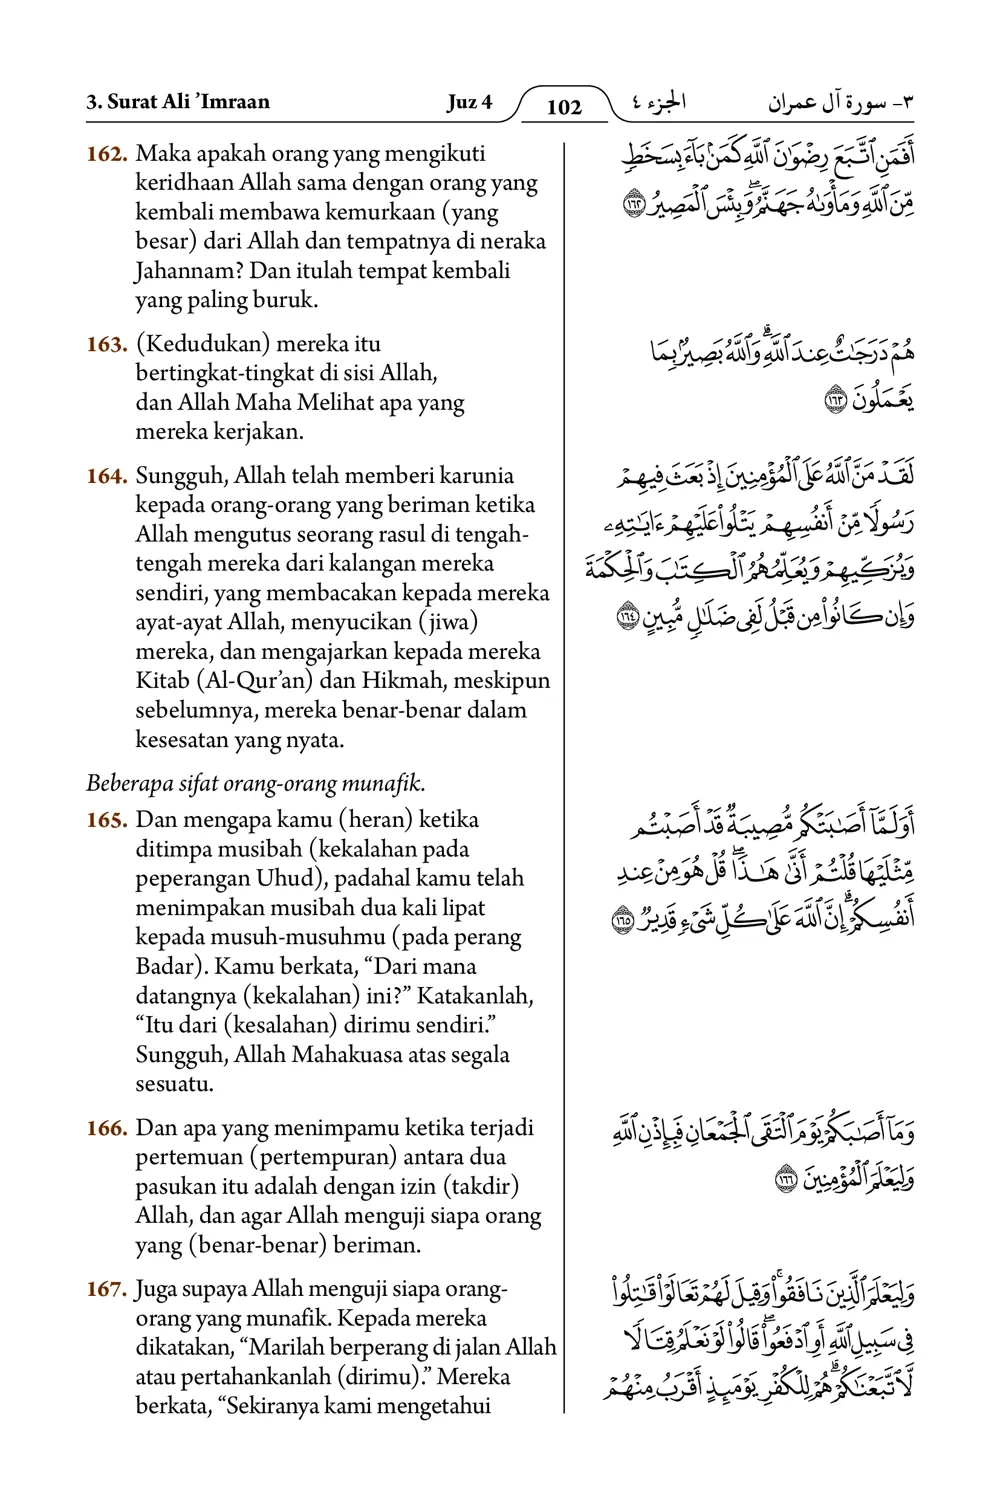 3. Surat Ali ’Imraan
Juz 4
102
الجزء ٤
٣- سورة آل عمران
162. Maka apakah orang yang mengikuti
keridhaan Allah sama dengan orang yang
kembali membawa kemurkaan (yang
besar) dari Allah dan tempatnya di neraka
Jahannam? Dan itulah tempat kembali
yang paling buruk.
أَفَمَنِ ٱتَّبَعَ رِضْوَٰنَ ٱللَّهِ كَمَنۢ بَآءَ بِسَخَطٍ
مِّنَ ٱللَّهِ وَمَأْوَىٰهُ جَهَنَّمُ ۖ وَبِئْسَ ٱلْمَصِيرُ ١٦٢
163. (Kedudukan) mereka itu
bertingkat-tingkat di sisi Allah,
dan Allah Maha Melihat apa yang
mereka kerjakan.
هُمْ دَرَجَٰتٌ عِندَ ٱللَّهِ ۗ وَٱللَّهُ بَصِيرٌۢ بِمَا
يَعْمَلُونَ ١٦٣
164. Sungguh, Allah telah memberi karunia
kepada orang-orang yang beriman ketika
Allah mengutus seorang rasul di tengah-
tengah mereka dari kalangan mereka
sendiri, yang membacakan kepada mereka
ayat-ayat Allah, menyucikan (jiwa)
mereka, dan mengajarkan kepada mereka
Kitab (Al-Qur’an) dan Hikmah, meskipun
sebelumnya, mereka benar-benar dalam
kesesatan yang nyata.
لَقَدْ مَنَّ ٱللَّهُ عَلَى ٱلْمُؤْمِنِينَ إِذْ بَعَثَ فِيهِمْ
رَسُولًا مِّنْ أَنفُسِهِمْ يَتْلُوا۟ عَلَيْهِمْ ءَايَٰتِهِۦ
وَيُزَكِّيهِمْ وَيُعَلِّمُهُمُ ٱلْكِتَٰبَ وَٱلْحِكْمَةَ
وَإِن كَانُوا۟ مِن قَبْلُ لَفِى ضَلَٰلٍ مُّبِينٍ ١٦٤
Beberapa sifat orang-orang munafik.
165. Dan mengapa kamu (heran) ketika
ditimpa musibah (kekalahan pada
peperangan Uhud), padahal kamu telah
menimpakan musibah dua kali lipat
kepada musuh-musuhmu (pada perang
Badar). Kamu berkata, “Dari mana
datangnya (kekalahan) ini?” Katakanlah,
“Itu dari (kesalahan) dirimu sendiri.”
Sungguh, Allah Mahakuasa atas segala
sesuatu.
أَوَلَمَّآ أَصَٰبَتْكُم مُّصِيبَةٌ قَدْ أَصَبْتُم
مِّثْلَيْهَا قُلْتُمْ أَنَّىٰ هَٰذَا ۖ قُلْ هُوَ مِنْ عِندِ
أَنفُسِكُمْ ۗ إِنَّ ٱللَّهَ عَلَىٰ كُلِّ شَىْءٍ قَدِيرٌ ١٦٥
166. Dan apa yang menimpamu ketika terjadi
pertemuan (pertempuran) antara dua
pasukan itu adalah dengan izin (takdir)
Allah, dan agar Allah menguji siapa orang
yang (benar-benar) beriman.
وَمَآ أَصَٰبَكُمْ يَوْمَ ٱلْتَقَى ٱلْجَمْعَانِ فَبِإِذْنِ ٱللَّهِ
وَلِيَعْلَمَ ٱلْمُؤْمِنِينَ ١٦٦
167. Juga supaya Allah menguji siapa orang-
orang yang munafik. Kepada mereka
dikatakan, “Marilah berperang di jalan Allah
atau pertahankanlah (dirimu).” Mereka
berkata, “Sekiranya kami mengetahui
وَلِيَعْلَمَ ٱلَّذِينَ نَافَقُوا۟ ۚ وَقِيلَ لَهُمْ تَعَالَوْا۟ قَٰتِلُوا۟
فِى سَبِيلِ ٱللَّهِ أَوِ ٱدْفَعُوا۟ ۖ قَالُوا۟ لَوْ نَعْلَمُ قِتَالًا
لَّٱتَّبَعْنَٰكُمْ ۗ هُمْ لِلْكُفْرِ يَوْمَئِذٍ أَقْرَبُ مِنْهُمْ